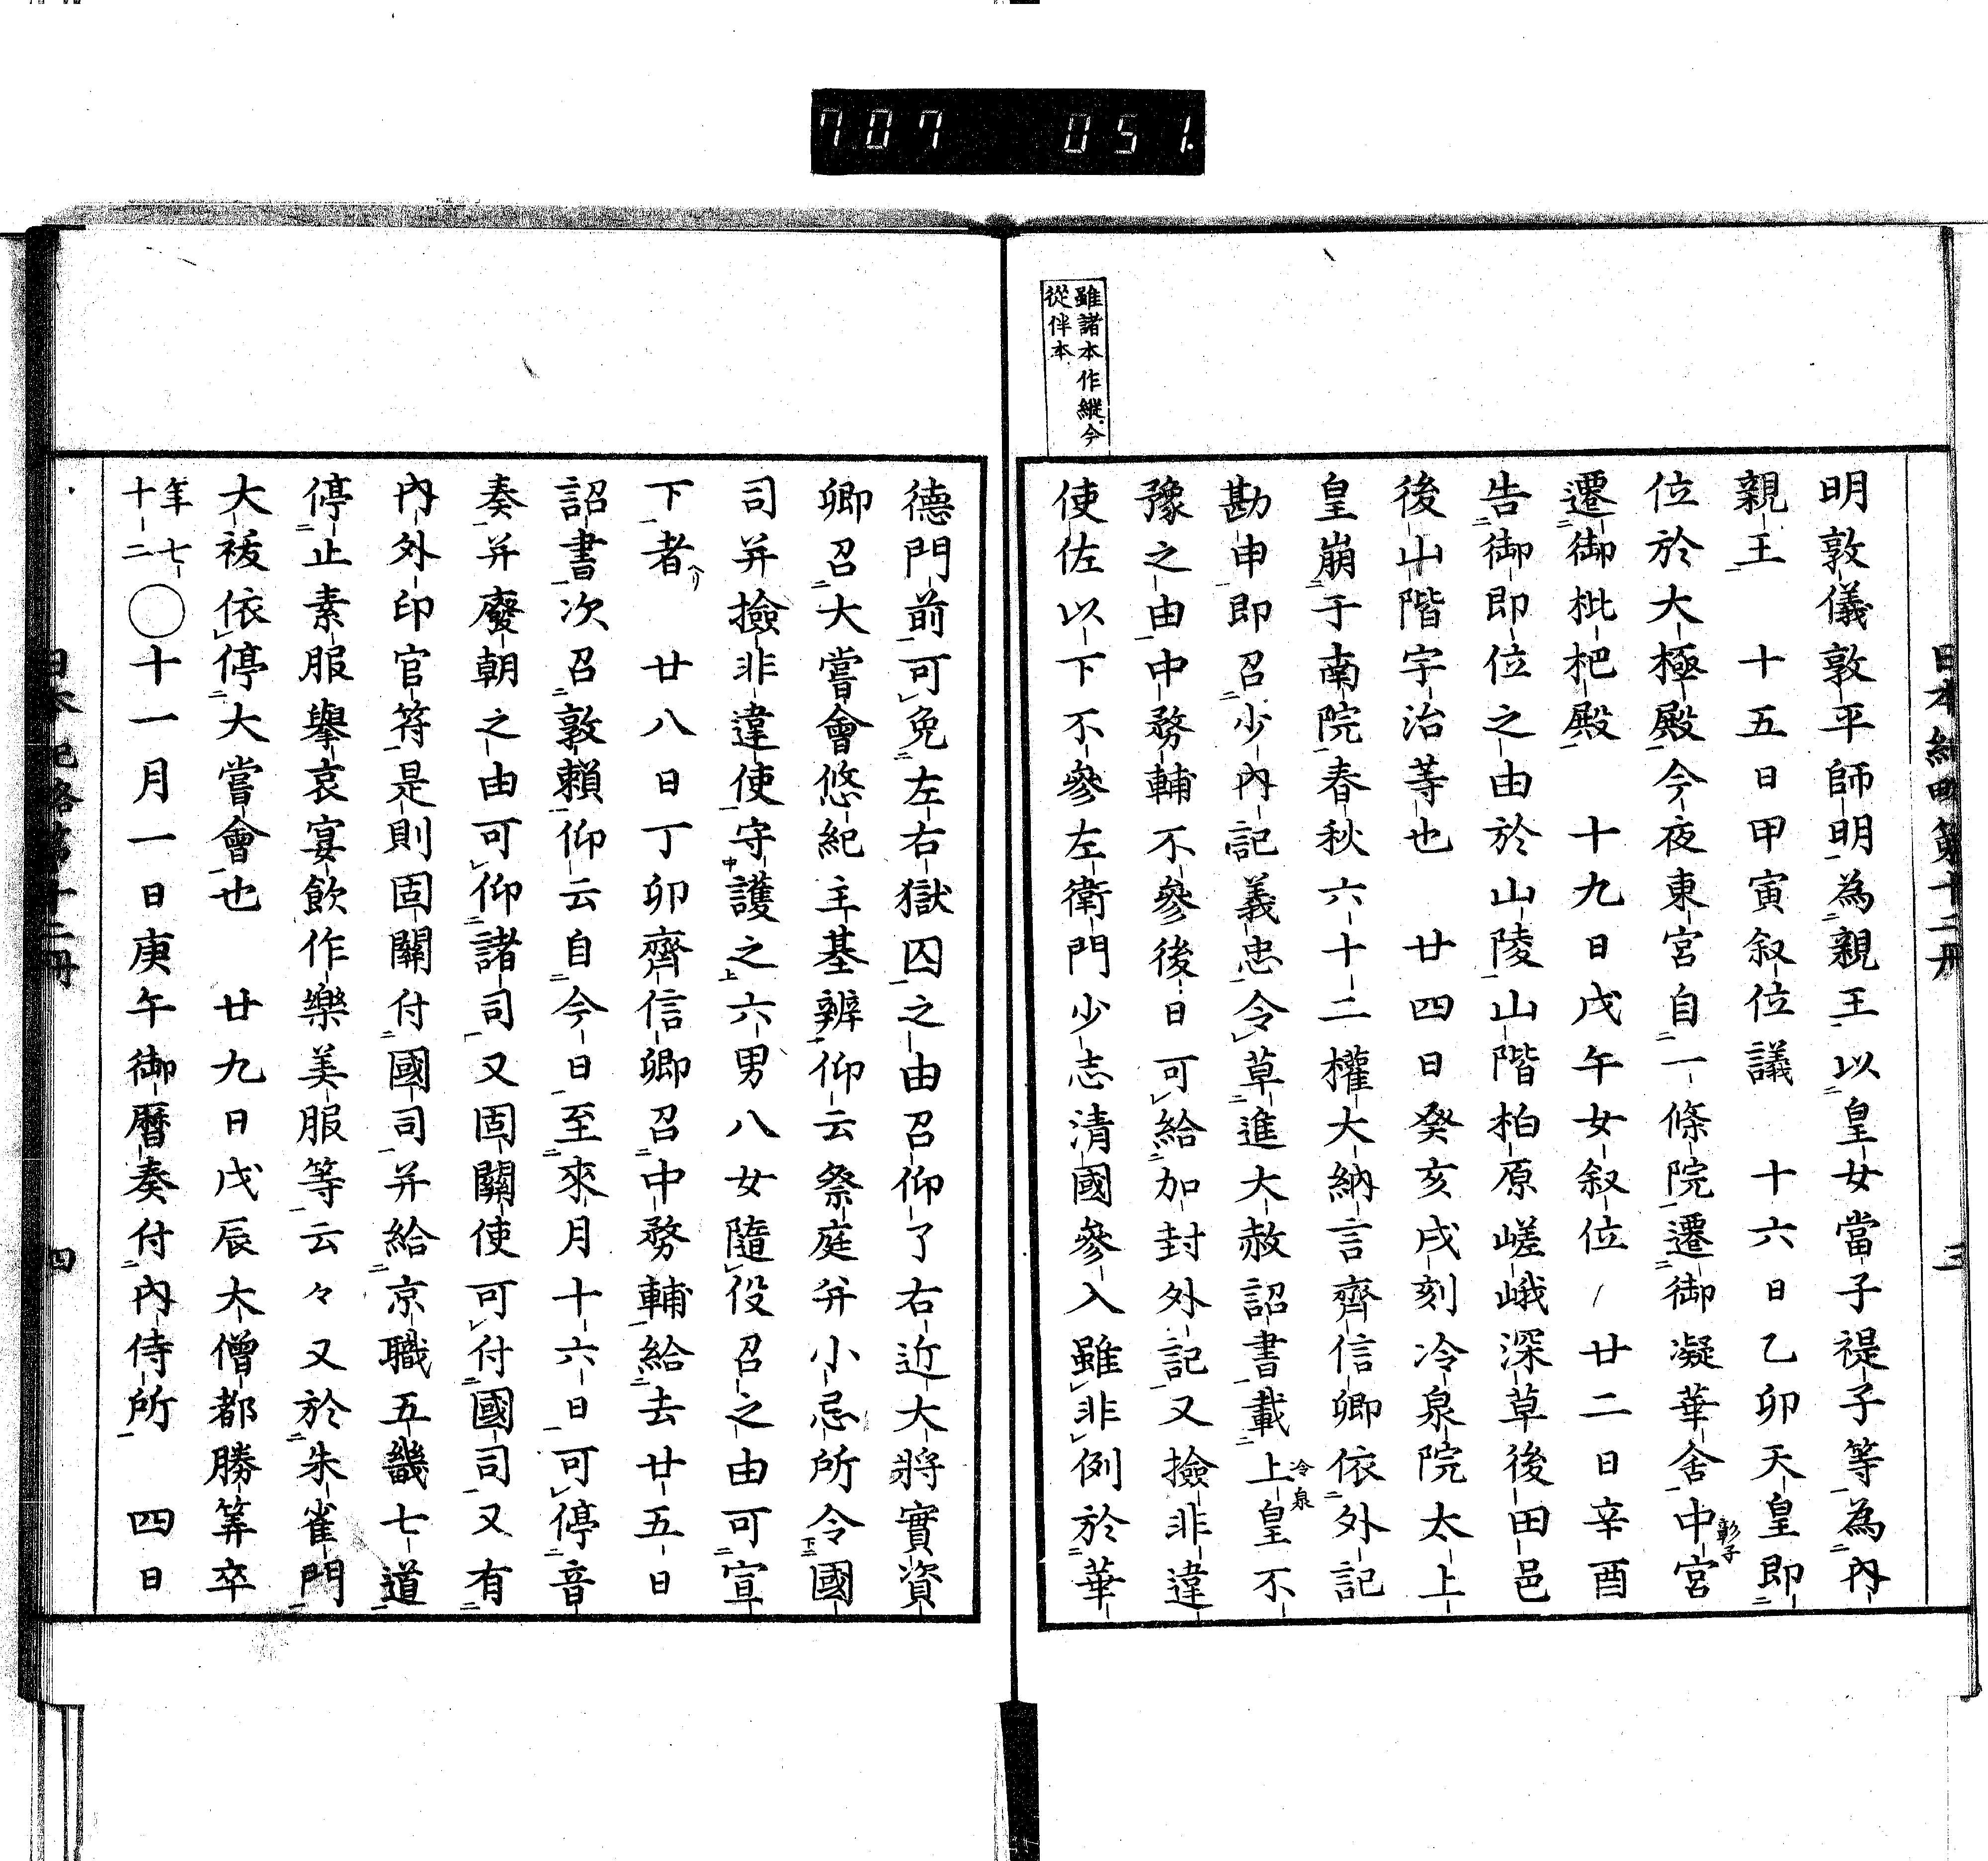 707 051
日本紀略第十二冊 三
雖諸本作縱今
從伴本
明敦儀敦平師明為親王以皇女當子禔子等為內
親王 十五日甲寅叙位議 十六日乙卯天皇即
位於大極殿今夜東宮自一條院遷御凝華舍中宮彰子
遷御枇杷殿 十九日戊午女叙位 廿二日辛酉
告御即位之由於山陵山階柏原嵯峨深草後田邑
後山階宇治等也 廿四日癸亥戌刻冷泉院太上
皇崩于南院春秋六十二權大納言齊信卿依外記
勘申即召少內記義忠令草進大赦詔書載冷泉上皇不
豫之由中務輔不參後日可給加封外記又撿非違
使佐以下不參左衛門少志清國參入雖非例於華
德門前可免左右獄囚之由召仰了右近大將實資
卿召大嘗會悠紀主基辨仰云祭庭并小忌所令國
司并撿非違使守護之六男八女隨役召之由可宣
下者 廿八日丁卯齊信卿召中務輔給去廿五日
詔書次召敦賴仰云自今日至來月十六日可停音
奏并廢朝之由可仰諸司又固關使可付國司又有
內外印官符是則固關付國司并給京職五畿七道
停止素服擧哀宴飲作樂美服等云々又於朱雀門
大祓依停大嘗會也 廿九日戊辰大僧都勝筭卒
年七
十二
○十一月一日庚午御曆奏付內侍所 四日
日本紀略第十二冊 四